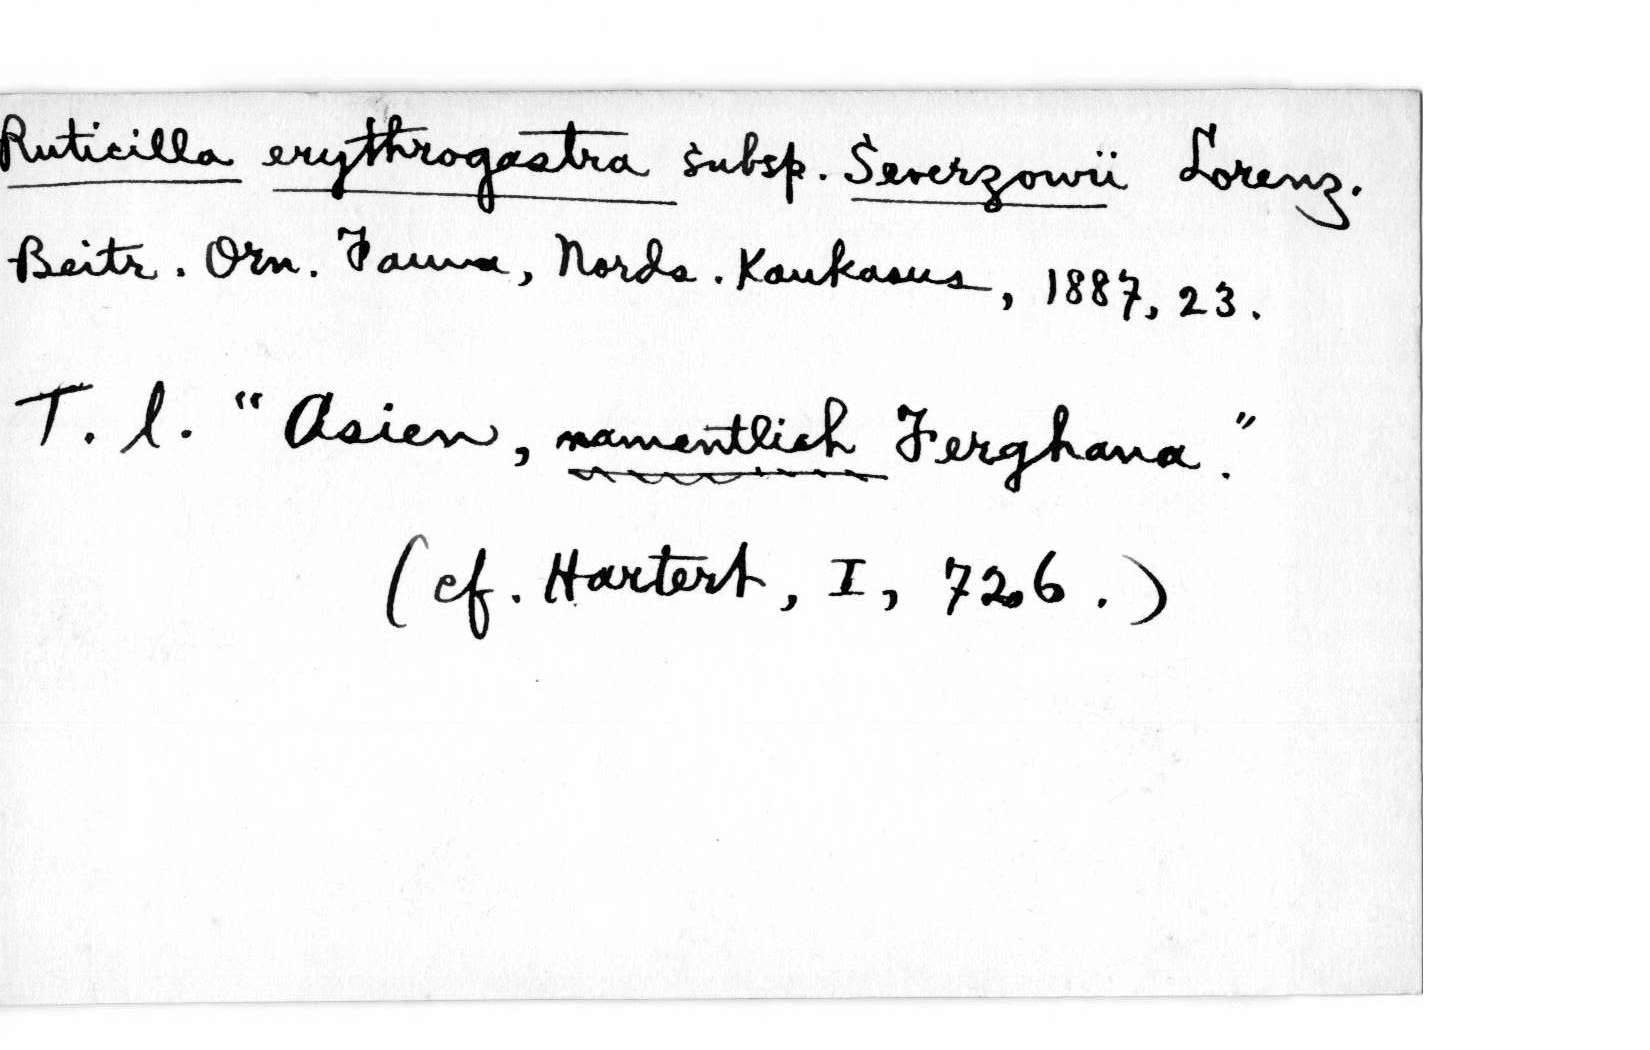 Ruticilla erythrogastra subsp. Severzowii Lorenz.
Beitr. Orn. Fauna, Nords. Kaukasus, 1887, 23.
T. l. "Asien, namentlich Ferghana."
(cf. Hartert, I, 726.)